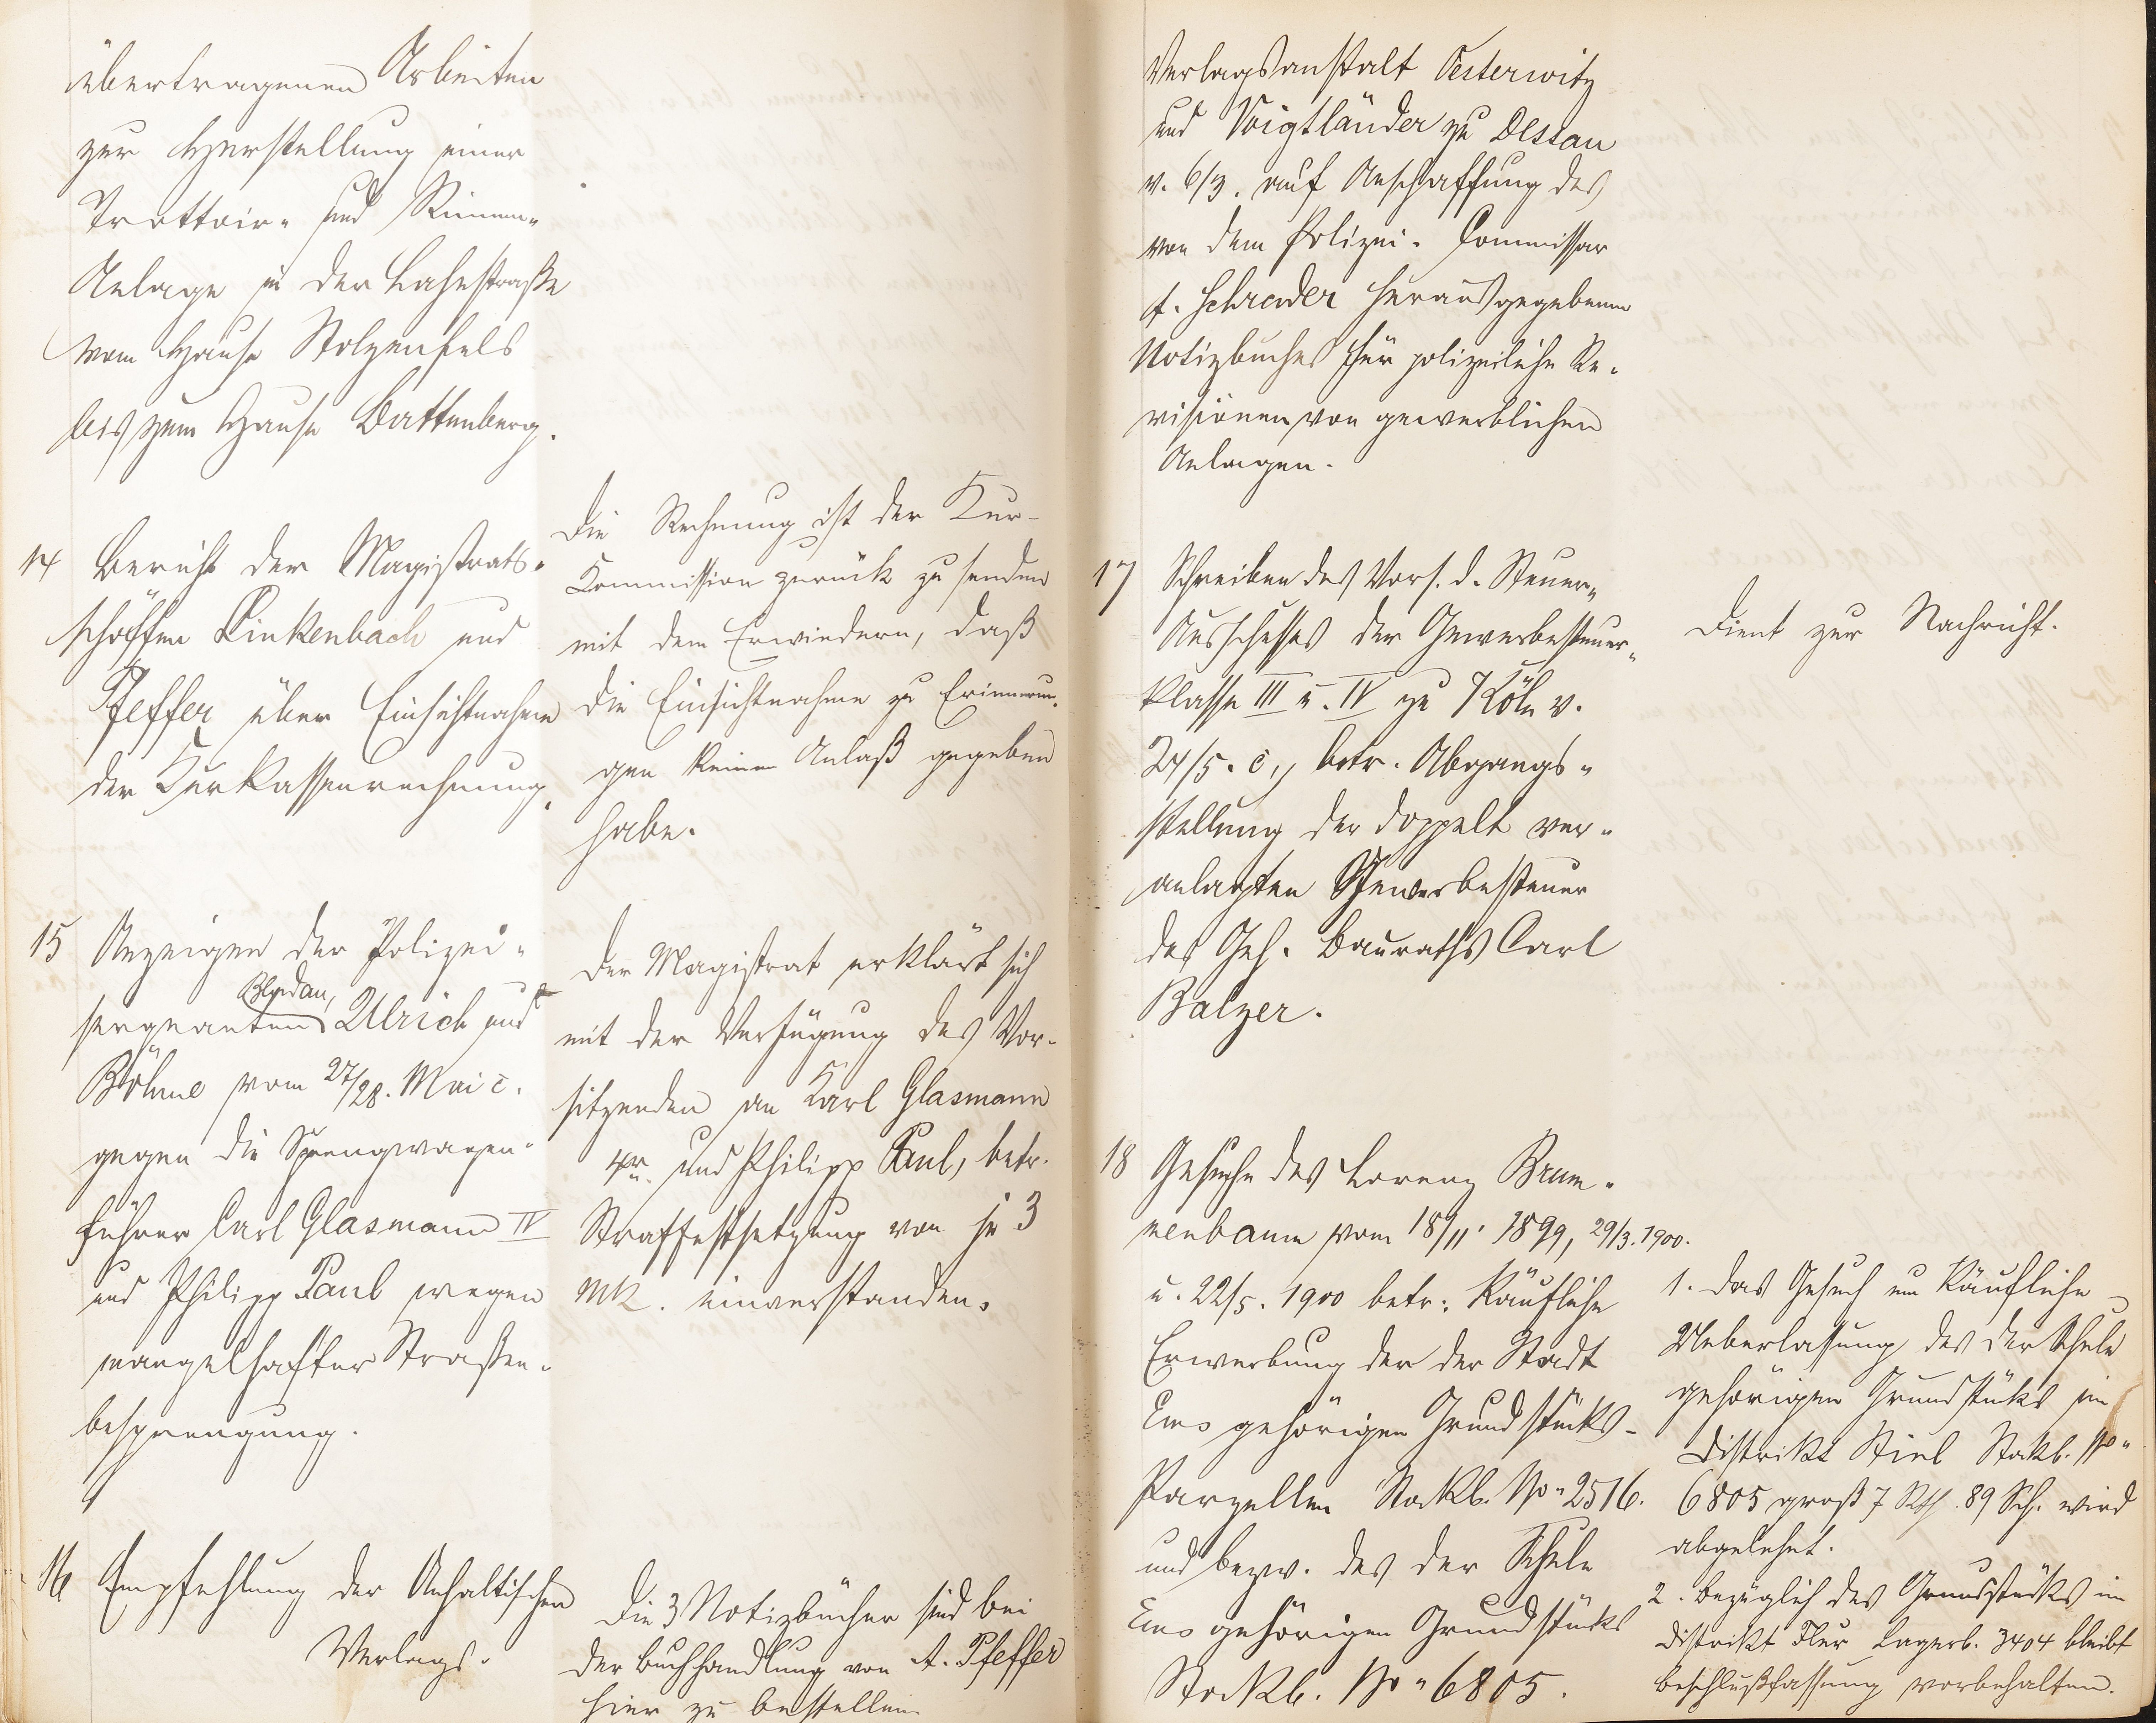 übertragenen Arbeiten
zur Herstellung einer
Trottoir- und Rinnen-
Anlage in der Lahnstraße
vom Hause Stolzenfels
bis zum Hause Battenberg.
14 Bericht der Magistrats-
schöffen Linkenbach und
Pfeffer über Einsichtnahme
der Kurkassenrechnung.
Die Rechnung ist der Kur-
Kommission zurück zu senden
mit dem Erwiedern, daß
die Einsichtnahme zu Erinnerun-
gen keinen Anlaß gegeben
habe.
15 Anzeigen der Polizei-
Bladau,
sergeanten Ulrich und
Böhme vom 27/28. Mai c.
gegen die Sprengwagen-
führer Carl Glasmann IV
und Philipp Paul wegen
mangelhafter Straßen-
besprengung.
Der Magistrat erklärt sich
mit der Verfügung des Vor-
sitzenden an Karl Glasmann
4r. und Philipp Paul, betr.
Straffestsetzung von je 3
Mk. einverstanden.
16 Empfehlung der Anhaltischen
Verlags-
Die 3 Notizbücher sind bei
der Buchhandlung von A. Pfeffer
hier zu bestellen.
Verlagsanstalt Oesterwitz
und Voigtländer zu Dessau
v. 6/3. auf Anschaffung des
von dem Polizei-Commissar
A. Schrader herausgegebenen
Notizbuches für polizeiliche Re-
visionen von gewerblichen
Anlagen.
17 Schreiben des Vors. d. Steuer-
Ausschusses der Gewerbesteuer-
klasse III u. IV zu Köln v.
24/5. c., betr. Abgangs-
stellung der doppelt ver-
anlagten Gewerbesteuer
des Geh. Bauraths Carl
Balzer.
Dient zur Nachricht.
18 Gesuche des Lorenz Brun-
nenbaum vom 18/11. 1899, 29/3. 1900.
u. 22/5. 1900 betr. käufliche
Erwerbung der der Stadt
Ems gehörigen Grundstücks-
Parzellen Stockb. No 2516.
und bezw. des der Schule
Ems gehörigen Grundstücks
Stockb. No 6805.
1. Das Gesuch um käufliche
Ueberlassung des der Schule
gehörigen Grundstücks im
Distrikt Stockb. No
6805 groß 7 Rth. 89 Sch. wird
abgelehnt.
2. Bezüglich des Grundstücks im
Distrikt Flur Lagerb. 3404 bleibt
Beschlußfassung vorbehalten.